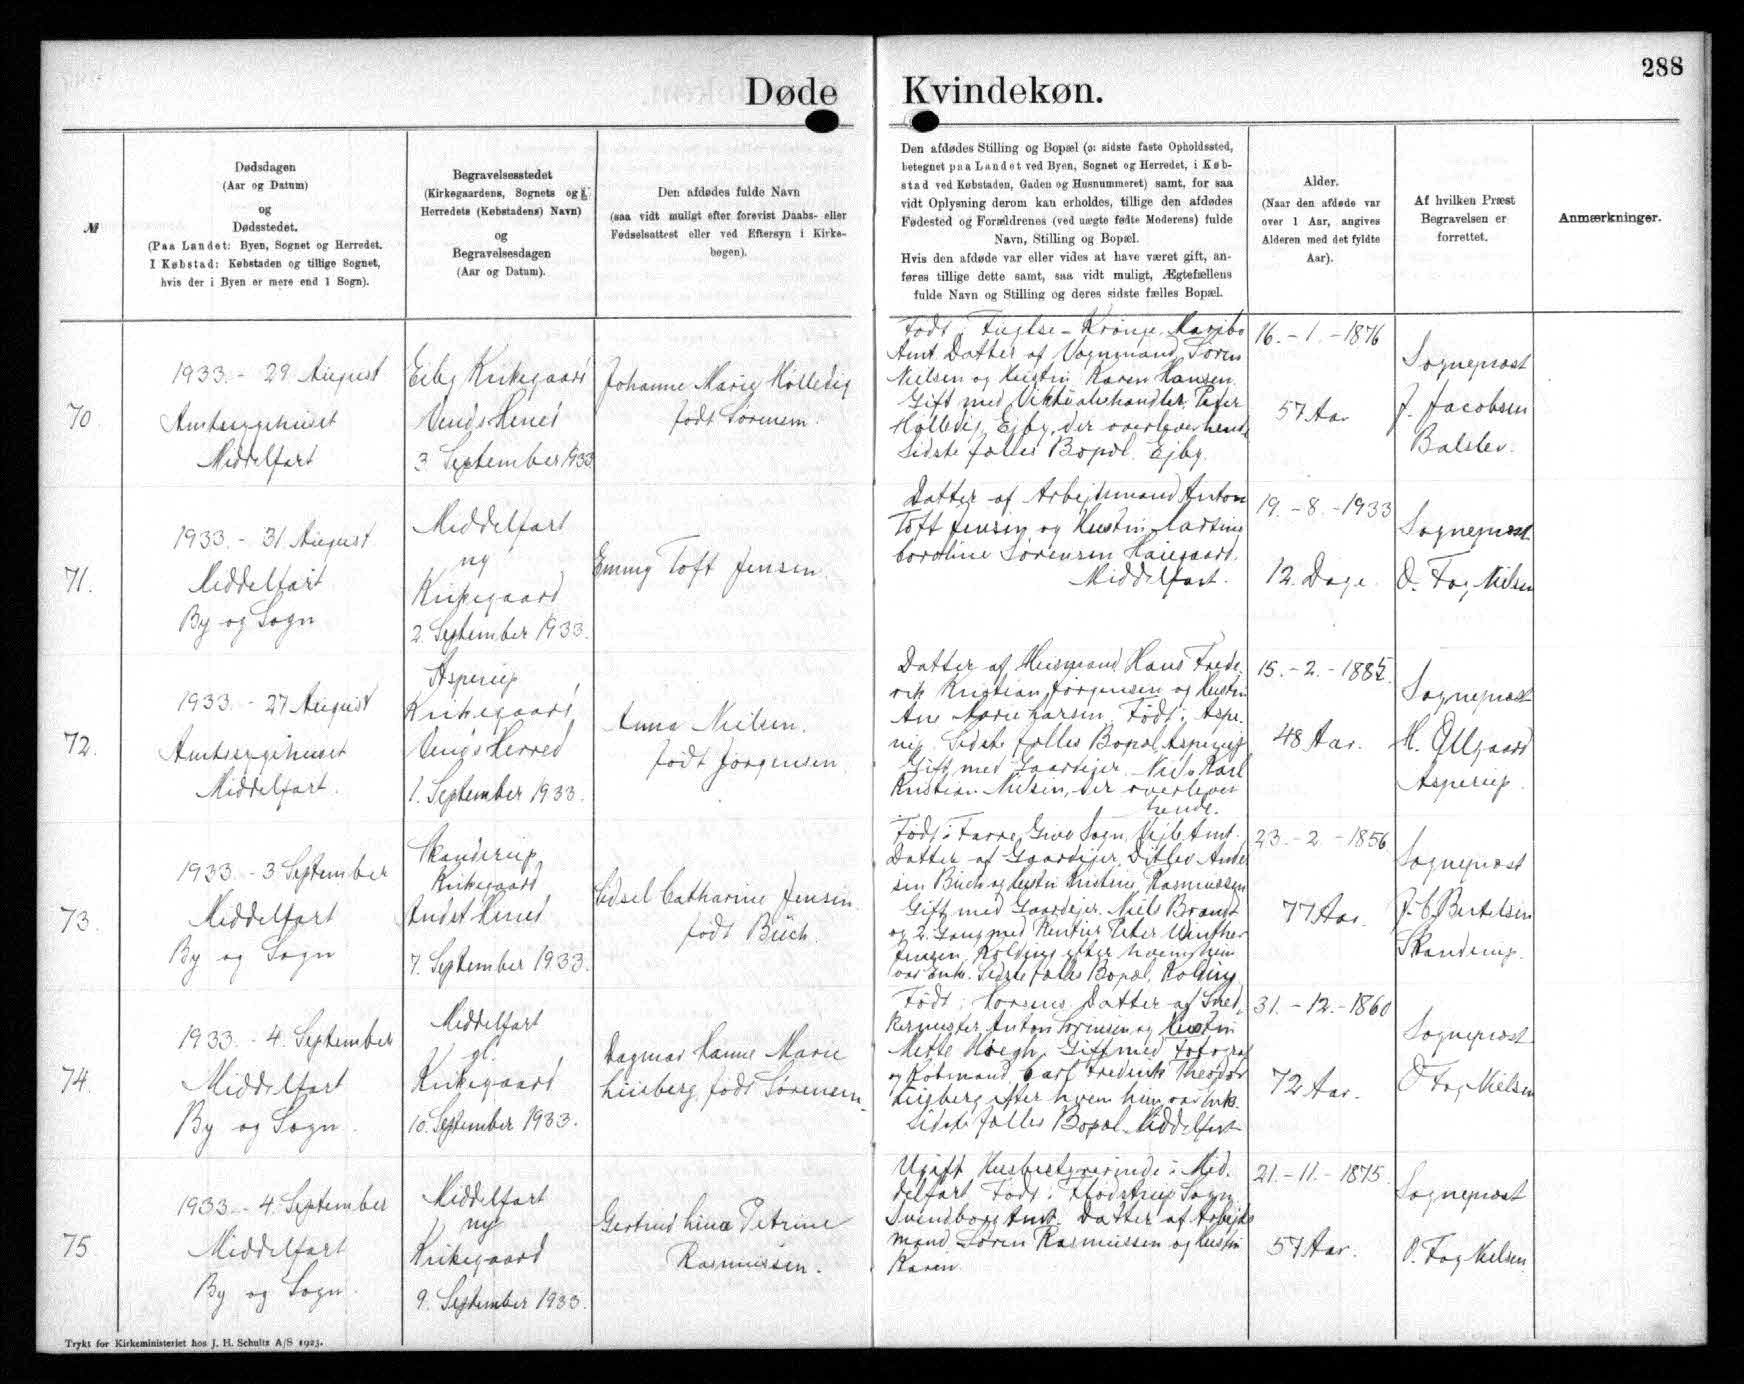 288
Døde Kvindekøn.
№
Dødsdagen
(Aar og Datum)
og
Dødsstedet.
(Paa Landet: Byen, Sognet og Herredet.
I Købstad: Købstaden og tillige Sognet,
hvis der i Byen er mere end 1 Sogn).
Begravelsesstedet
(Kirkegaardens, Sognets og
Herredets (Købstadens) Navn)
og
Begravelsesdagen
(Aar og Datum).
Den afdødes fulde Navn
(saa vidt muligt efter forevist Daabs- eller
Fødselsattest eller ved Eftersyn i Kirke-
bogen).
Den afdødes Stilling og Bopæl (ɔ: sidste faste Opholdssted,
betegnet paa Landet ved Byen, Sognet og Herredet, i Køb-
stad ved Købstaden, Gaden og Husnummeret) samt, for saa
vidt Oplysning derom kan erholdes, tillige den afdødes
Fødested og Forældrenes (ved uægte fødte Moderens) fulde
Navn, Stilling og Bopæl.
Hvis den afdøde var eller vides at have været gift, an-
føres tillige dette samt, saa vidt muligt, Ægtefællens
fulde Navn og Stilling og deres sidste fælles Bopæl.
Alder.
(Naar den afdøde var
over 1 Aar, angives
Alderen med det fyldte
Aar).
Af hvilken Præst
Begravelsen er
forrettet.
Anmærkninger.
70.
1933. - 29 August
Amtssygehuset
Middelfart
Ejby Kirkegaard
Vends Herred
3 September 1933
Johanne Marie Hollesig
født Sørensen.
Født i Fuglse - Krønge, Maribo
Amt. Datter af Vognmand Søren
Nielsen og Hustru Karen Hansen.
Gift med Viktualiehandler Peter
Ejby, der overlever hende
Sidste fælles Bopæl Ejby.
16. - 1. - 1876
57 Aar
Sognepræst
J. Jacobsen
Balslev.
71.
1933. - 31 August
Middelfart
By og Sogn
Middelfart
ny
Kirkegaard
2. September 1933.
Emmy Toft Jensen.
Datter af Arbejdsmand Anton
Toft Jensen og Hustru
Caroline Sørensen
Middelfart.
19. - 8. - 1933
12. Dage.
Sognepræst
O. Fog Nielsen
72.
1933. - 27 August
Amtssygehuset
Middelfart.
Asperup
Kirkegaard
Vends Herred
1. September 1933.
Anna Nielsen.
født Jørgensen.
Datter af Husmand Hans Frede-
rik Kristian Jørgensen og Hustru
Ane Marie Larsen. Født i Aspe-
rup. Sidste fælles Bopæl Asperup
Gift med Gaardejer Niels Karl
Kristian Nielsen, der overlever
hende.
15. - 2. - 1885.
48 Aar.
Sognepræst
H. Øllgaard
Asperup.
73.
1933. - 3 September
Middelfart
By og Sogn
Skanderup
Kirkegaard
Andst Herred
7. September 1933.
Sidsel Catharine Jensen
født Büch.
Født i Farre, Give Sogn, Vejle Amt.
Datter af Gaardejer Ditlev Ander-
sen Büch og Hustru Kristine Rasmussen
Gift med Gaardejer Niels Brandt
og 2. Gang med Rentier Peter Winther
Jensen, Kolding efter hvem hun
var Enke. Sidste fælles Bopæl. Kolding
23. - 2 - 1856.
77 Aar.
Sognepræst
J. C. Bertelsen
Skanderup.
74.
1933. - 4. September
Middelfart
By og Sogn.
Middelfart
gl.
Kirkegaard
10. September 1933.
Dagmar Hanne Marie
Liisberg, født Sørensen.
Født i Horsens. Datter af Sned-
kermester Anton Sørensen og Hustru
Mette Høegh. Gift med Fotograf
og Købmand Carl Frederik Theodor
Liisberg efter hvem hun var Enke.
Sidste fælles Bopæl. Middelfart
31. - 12. - 1860
72 Aar.
Sognepræst
O Fog Nielsen
75.
1933. - 4. September
Middelfart
By og Sogn.
Middelfart
ny
Kirkegaard
9. September 1933.
Gertrud Lina Petrine
Rasmussen.
Ugift Husbestyrerinde i Mid-
delfart. Født i Flødstrup Sogn
Svendborg Amt. Datter af Arbejds-
mand Søren Rasmussen og Hustru
Karen
21. - 11. - 1875.
57 Aar.
Sognepræst
O. Fog Nielsen
Trykt for Kirkeministeriet hos J. H. Schultz A/S 1923.